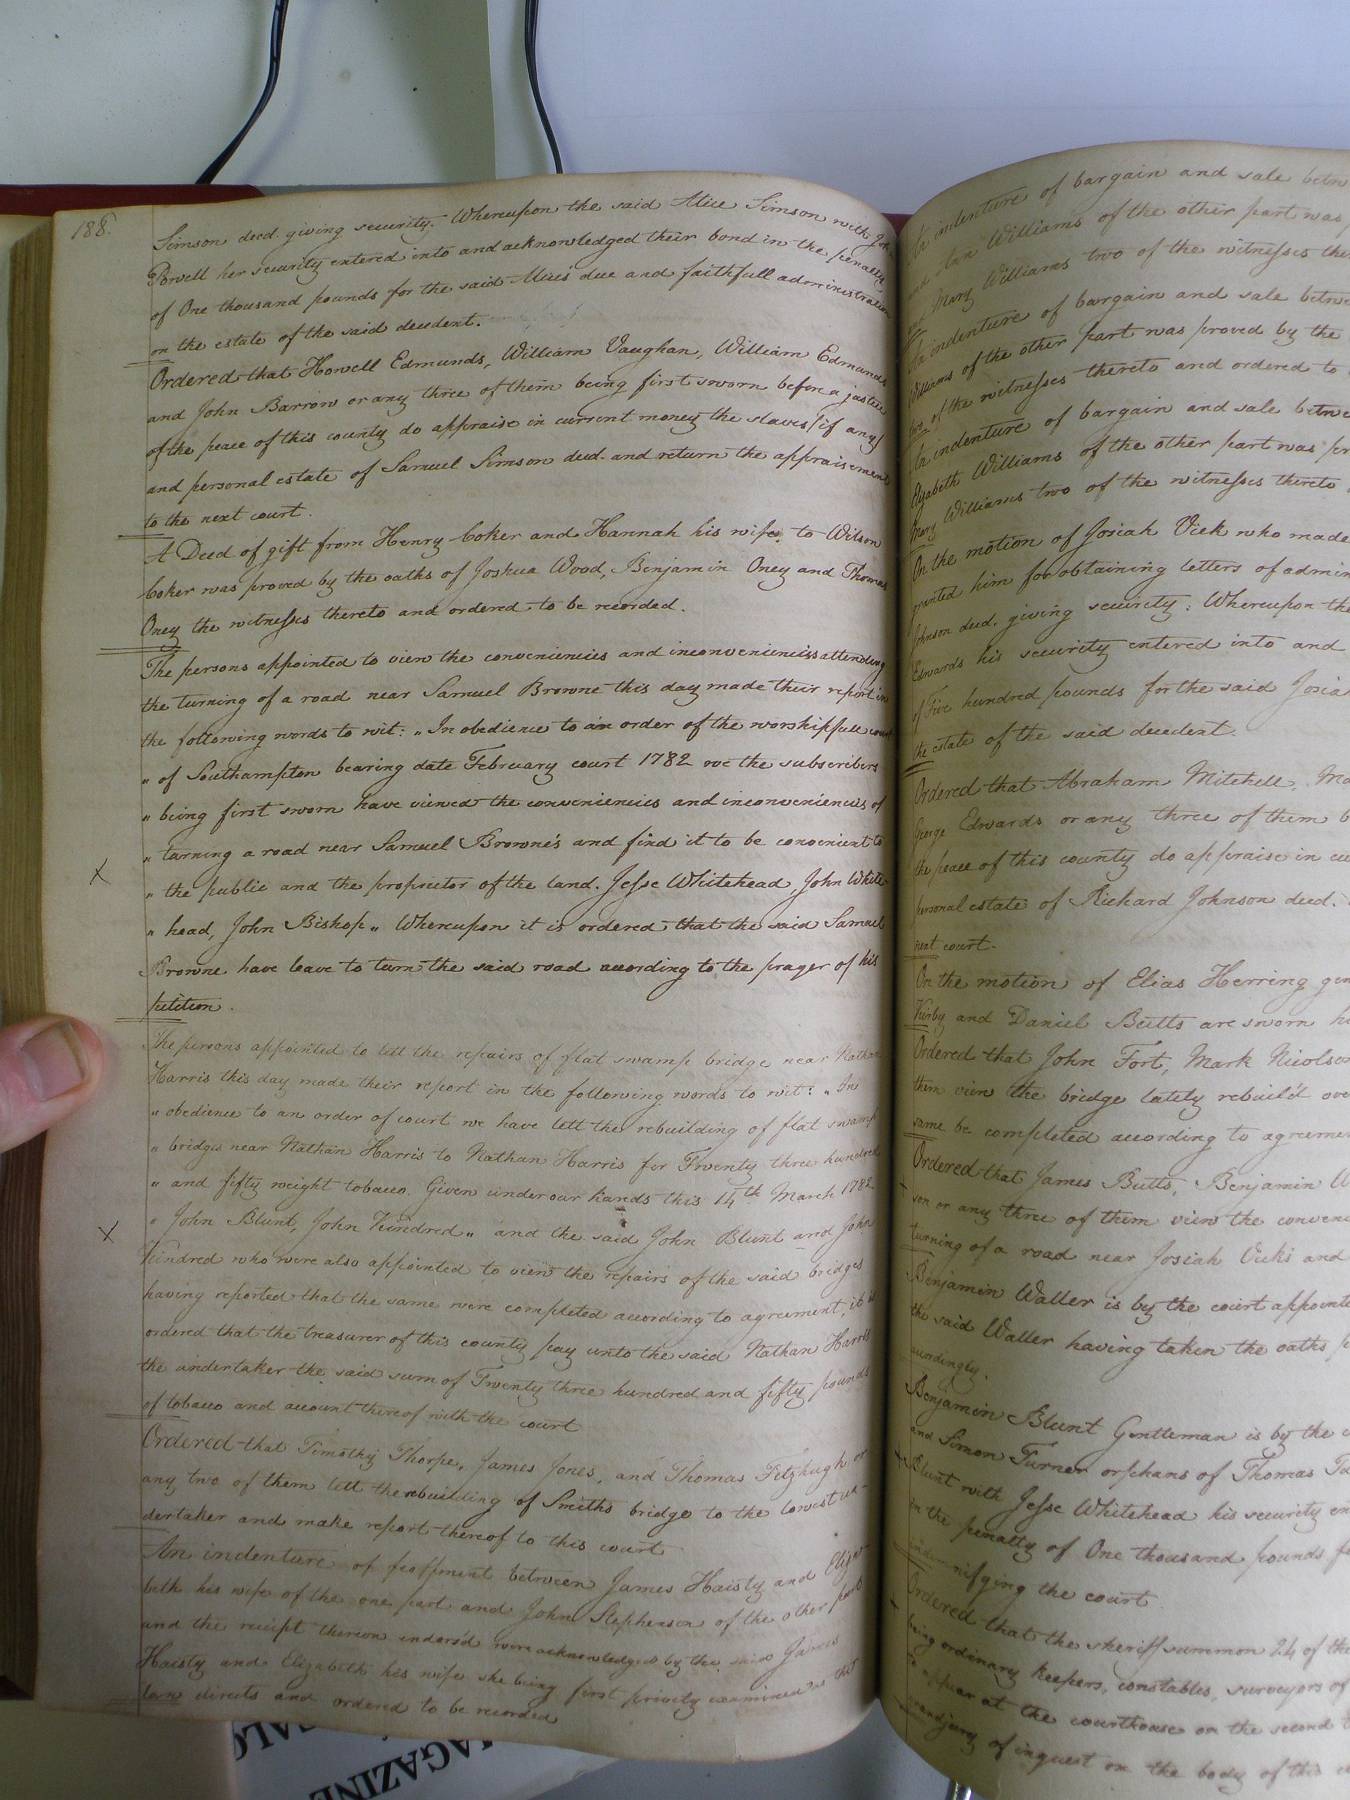 188.
Simson decd. giving security. Whereupon the said Alice Simson with
Powell her security entered into and acknowledged their bond in the penalty
of One thousand pounds for the said Alice's due and faithfull administration
on the estate of the said decedent.
Ordered that Howell Edmunds, William Vaughan, William Edmunds
and John Barrow or any three of them being first sworn before a justice
of the peace of this county do appraise in current money the slaves (if any)
and personal estate of Samuel Simson decd. and return the appraisement
to the next court.
A Deed of gift from Henry Coker and Hannah his wife, to Wilson
Coker was proved by the oaths of Joshua Wood, Benjamin Oney and Thomas
Oney the witnesses thereto and ordered to be recorded.
The persons appointed to view the conveniencies and inconveniencies attending
the turning of a road near Samuel Browne this day made their report in
the following words to wit: "In obedience to an order of the worshipfull court
" of Southampton bearing date February court 1782 we the subscribers
" being first sworn have viewed the conveniencies and inconveniencies of
" turning a road near Samuel Browne's and find it to be convenient to
" the public and the proprietor of the land. Jesse Whitehead, John White-
" head, John Bishop" Whereupon it is ordered that the said Samuel
Browne have leave to turn the said road according to the prayer of his
petition.
The persons appointed to lett the repairs of flat swamp bridge near Nathan
Harris this day made their report in the following words to wit: "In
" obedience to an order of court we have lett the rebuilding of flat swamp
" bridges near Nathan Harris to Nathan Harris for Twenty three hundred
" and fifty weight tobacco. Given under our hands this 14th March 1782
" John Blunt, John Kindred" and the said John Blunt and John
Kindred who were also appointed to view the repairs of the said bridges
having reported that the same were completed according to agreement, it is
ordered that the treasurer of this county pay unto the said Nathan Harris
the undertaker the said sum of Twenty three hundred and fifty pounds
of tobacco and account thereof with the court
Ordered that Timothy Thorpe, James Jones, and Thomas Fitzhugh or
any two of them lett the rebuilding of Smiths bridge to the lowest un-
dertaker and make report thereof to this court
An indenture of feoffment between James Haisty and Eliza-
beth his wife of the one part and John Stephenson of the other part
and the receipt thereon indors'd were acknowledged by the said James
Haisty and Elizabeth his wife she being first privily examined as the
law directs and ordered to be recorded
An indenture of bargain and sale betw
and Williams of the other part was
and Mary Williams two of the witnesses the
An indenture of bargain and sale betwe
Williams of the other part was proved by the
two of the witnesses thereto and ordered to
An indenture of bargain and sale betwe
Elizabeth Williams of the other part was pr
Mary Williams two of the witnesses thereto
On the motion of Josiah Vick who made
granted him for obtaining letters of admin
Johnson decd. giving security. Whereupon the
Edwards his security entered into and
of Five hundred pounds for the said Josia
the estate of the said decedent.
Ordered that Abraham Mitchell,
George Edwards or any three of them b
the peace of this county do appraise in cu
personal estate of Richard Johnson decd.
next court.
On the motion of Elias Herring gen
Kirby and Daniel Butts are sworn
Ordered that John Fort, Mark Nicolso
them view the bridge lately rebuild ove
same be completed according to agreeme
Ordered that James Butts, Benjamin W
son or any three of them view the conveni
turning of a road near Josiah Vicks and
Benjamin Waller is by the court appointe
the said Waller having taken the oaths p
accordingly.
Benjamin Blunt Gentleman is by the c
and Simon Turner orphans of Thomas
Blunt with Jesse Whitehead his security en
in the penalty of One thousand pounds f
indemnifying the court
Ordered that the sheriff summon 24 of the
being ordinary keepers, constables, surveyors of
to appear at the courthouse on the second
grandjury of inquest on the body of this c
MAGAZINE